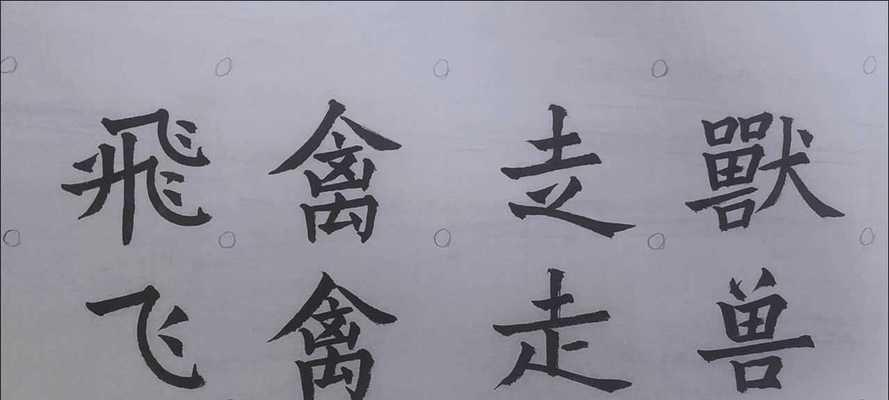 飛禽走獸
飞禽走兽